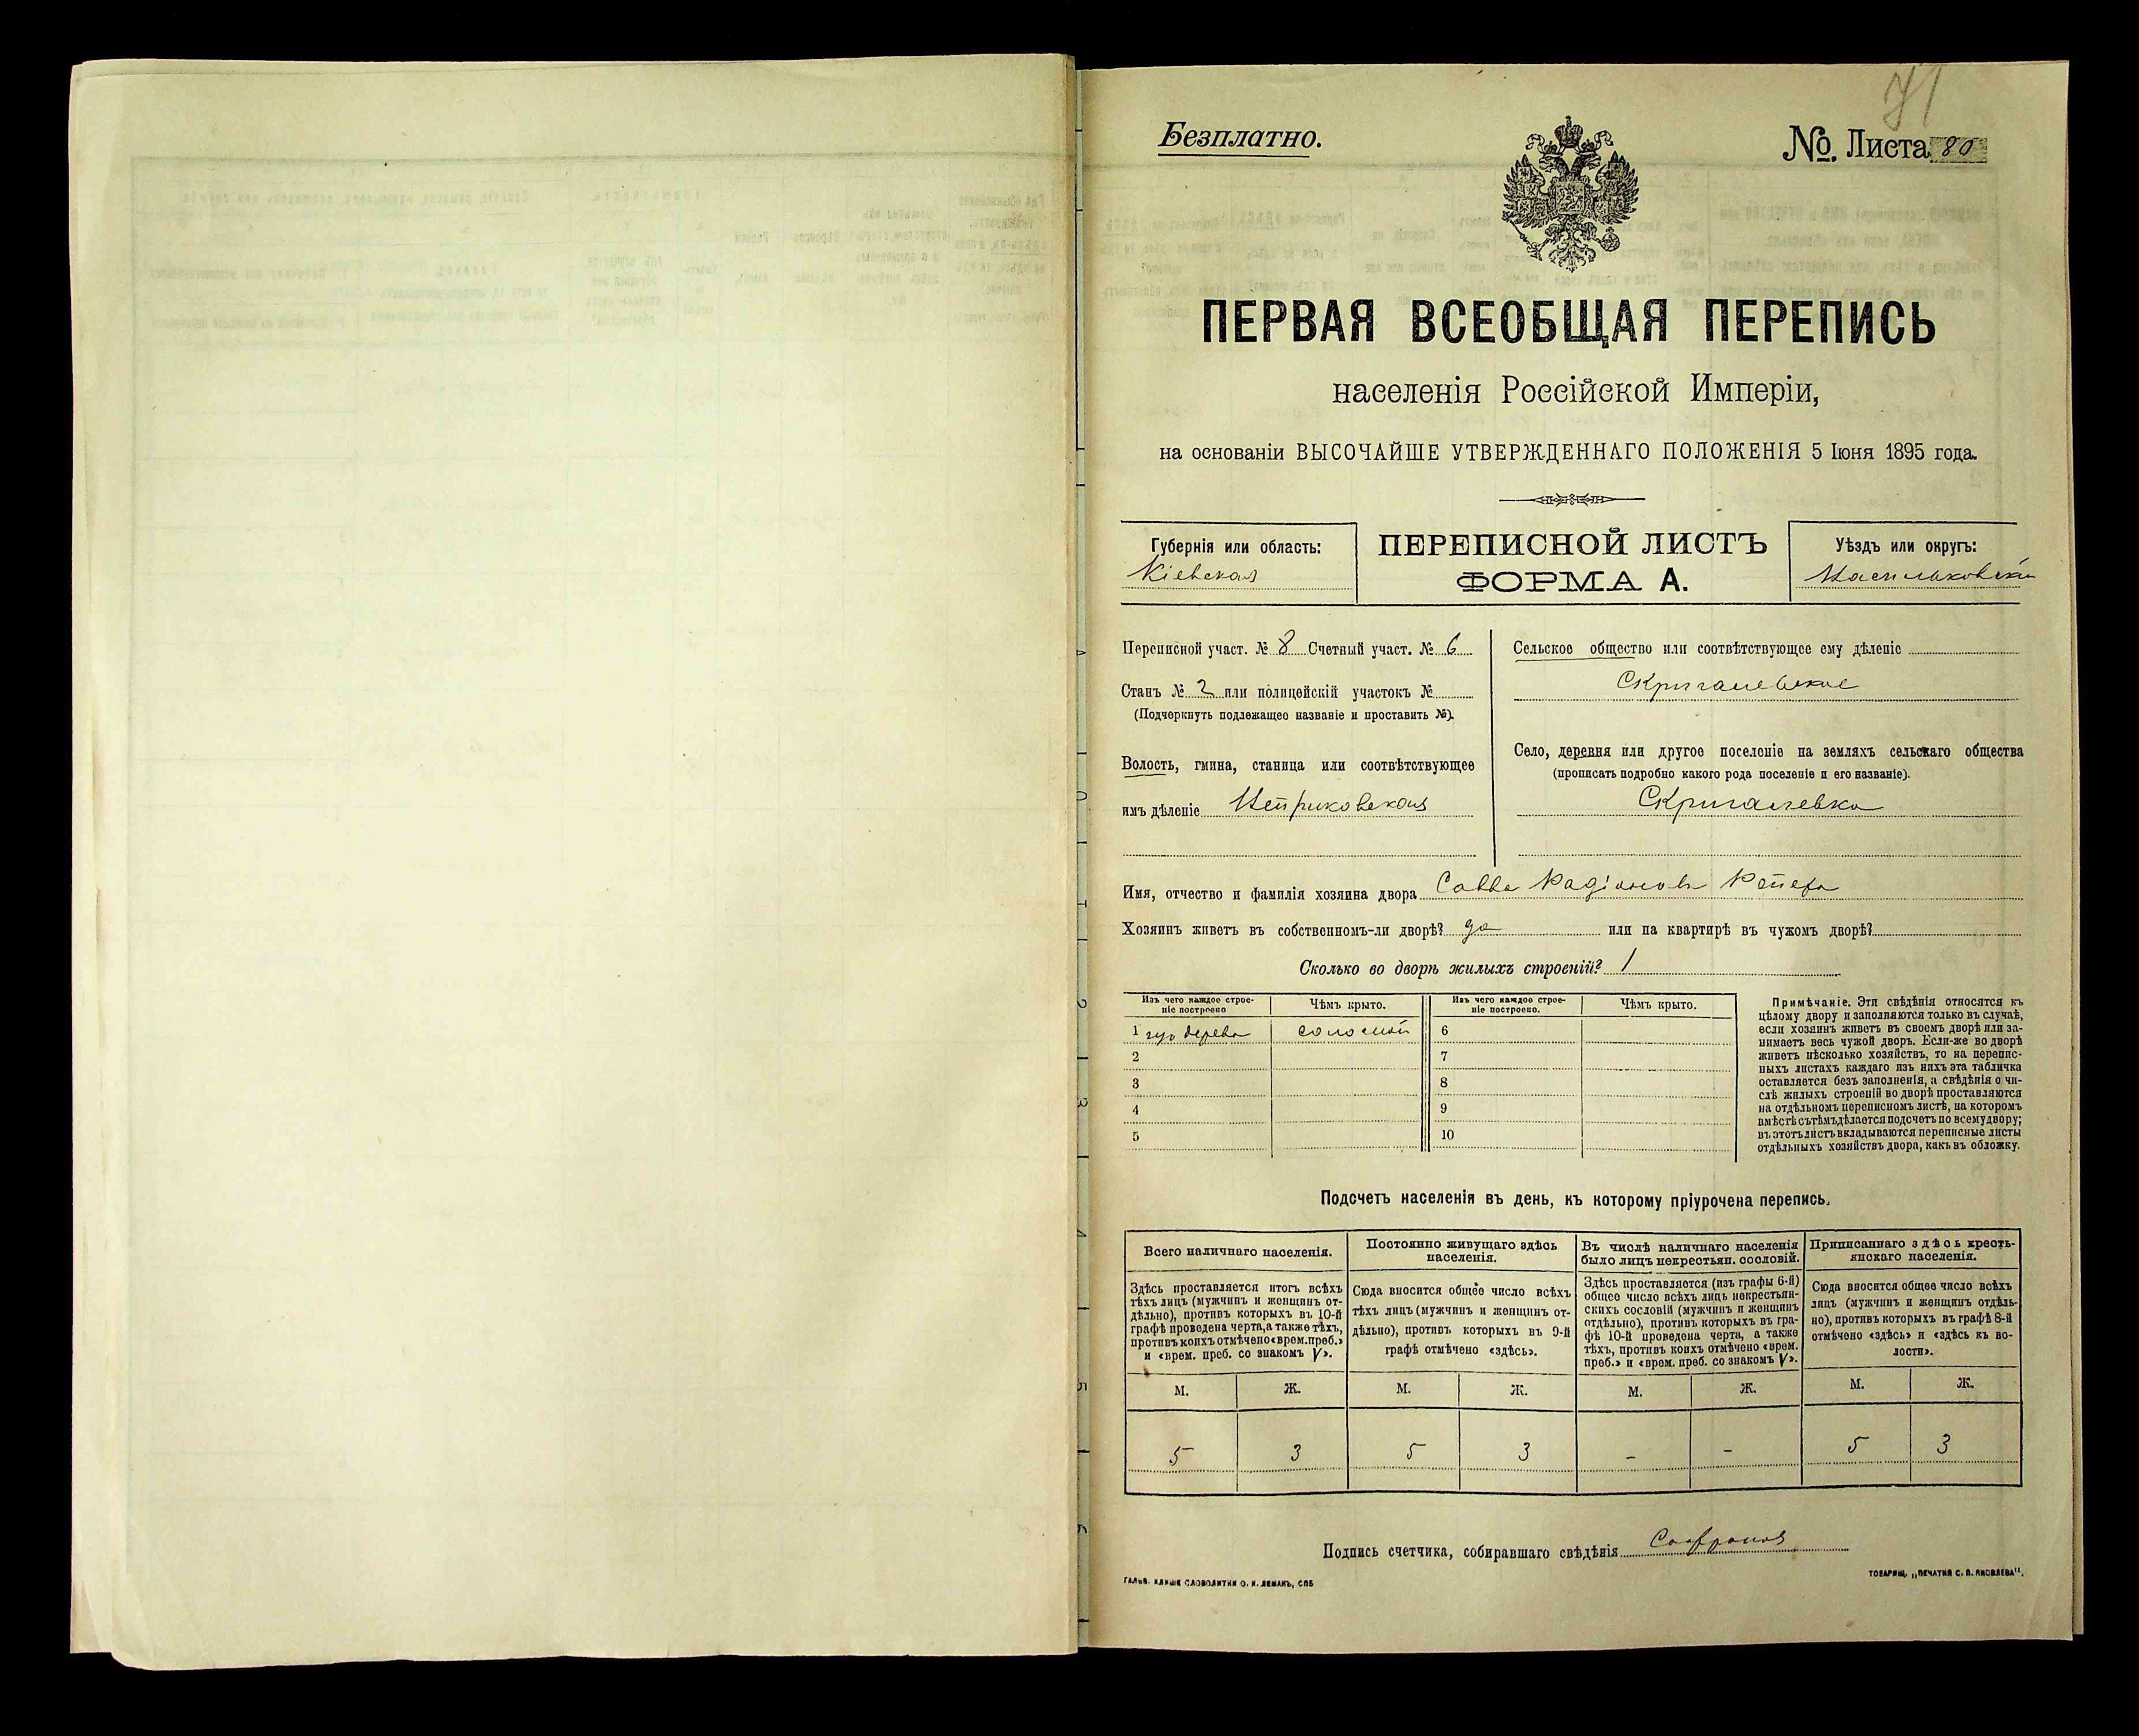 71
Безплатно.
№. Листа 80
ПЕРВАЯ ВСЕОБЩАЯ ПЕРЕПИСЬ
населенія Россійской Имперіи,
на основаніи ВЫСОЧАЙШЕ УТВЕРЖДЕННАГО ПОЛОЖЕНІЯ 5 Іюня 1895 года.
Губернія или область:
Кіевская
ПЕРЕПИСНОЙ ЛИСТЪ
ФОРМА А.
Уѣздъ или округъ:
Васильковскій
Переписной участ. № 8 Счетный участ. № 6
Станъ № 2 или полицейскій участокъ №
(Подчеркнуть подлежащее названіе и проставить №).
Волость, гмина, станица или соотвѣтствующее
имъ дѣленіе
Сельское общество или соотвѣтствующее ему дѣленіе
Скригалевское
Село, деревня или другое поселеніе на земляхъ сельскаго общества
(прописать подробно какого рода поселеніе и его названіе).
Скригалевка
Имя, отчество и фамилія хозяина двора Савва Радіоновъ Репета
Хозяинъ живетъ въ собственномъ-ли дворѣ? да или на квартирѣ въ чужомъ дворѣ?
Сколько во дворѣ жилыхъ строеній? 1
Изъ чего каждое строе-
ніе построено
Чѣмъ крыто.
Изъ чего каждое строе-
ніе построено.
Чѣмъ крыто.
1 изъ дерева соломой 6
2 7
3 8
4 9
5 10
Примѣчаніе. Эти свѣдѣнія относятся къ
цѣлому двору и заполняются только въ случаѣ,
если хозяинъ живетъ въ своемъ дворѣ или за-
нимаетъ весь чужой дворъ. Если-же во дворѣ
живетъ нѣсколько хозяйствъ, то на перепис-
ныхъ листахъ каждаго изъ нихъ эта табличка
оставляется безъ заполненія, а свѣдѣнія о чи-
слѣ жилыхъ строеній во дворѣ проставляются
на отдѣльномъ переписномъ листѣ, на которомъ
вмѣстѣ съ тѣмъ дѣлается подсчетъ по всему двору;
въ этотъ листъ вкладываются переписные листы
отдѣльныхъ хозяйствъ двора, какъ въ обложку.
Подсчетъ населенія въ день, къ которому пріурочена перепись.
Всего наличнаго населенія.
Здѣсь проставляется итогъ всѣхъ
тѣхъ лицъ (мужчинъ и женщинъ от-
дѣльно), противъ которыхъ въ 10-й
графѣ проведена черта, а также тѣхъ,
противъ коихъ отмѣчено «врем. преб.»
и «врем. преб. со знакомъ V».
Постоянно живущаго здѣсь
населенія.
Сюда вносится общее число всѣхъ
тѣхъ лицъ (мужчинъ и женщинъ от-
дѣльно), противъ которыхъ въ 9-й
графѣ отмѣчено «здѣсь».
Въ числѣ наличнаго населенія
было лицъ некрестьян. сословій.
Здѣсь проставляется (изъ графы 6-й)
общее число всѣхъ лицъ некрестьян-
скихъ сословій (мужчинъ и женщинъ
отдѣльно), противъ которыхъ въ гра-
фѣ 10-й проведена черта, а также
тѣхъ, противъ коихъ отмѣчено «врем.
преб.» и «врем. преб. со знакомъ V».
Приписаннаго здѣсь кресть-
янскаго населенія.
Сюда вносится общее число всѣхъ
лицъ (мужчинъ и женщинъ отдѣль-
но), противъ которыхъ въ графѣ 8-й
отмѣчено «здѣсь» и «здѣсь въ во-
лости».
М. Ж. М. Ж. М. Ж. М. Ж.
5 3 5 3 - - 5 3
Подпись счетчика, собиравшаго свѣдѣнія
ГАЛЬВ. КЛИШЕ СЛОВОЛИТНИ О. И. ЛЕМАНЪ, СПБ
ТОВАРИЩ. „ПЕЧАТНЯ С. П. ЯКОВЛЕВА“.